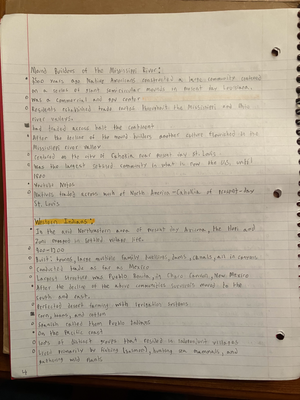 Mound Builders of the Mississippi River:
3500 years ago Native Americans constructed a large community centered
on a series of giant semicircular mounds in present day Louisiana.
Was a commercial and gov center
Residents established trade routes throughout the Mississippi and Ohio
river valleys.
had traded across half the continent
After the decline of the mound builders another culture flourished in the
Mississippi river valley
Centered on the city of Cahokia near present day St. Louis
Was the largest settled community in what is now the U.S. until
1800
Youtube Notes
Natives traded across much of North America - Cahokia of present-day
St. Louis
Western Indians:
In the arid Northeastern area of present day Arizona, the Hopi and
Zuni engaged in settled village life.
900-1200
Built: towns, large multiple family dwellings, dams, canals, all in canyons
Conducted trade as far as Mexico
Largest structure was Pueblo Bonita, in Chaco Canyon, New Mexico
After the decline of the above communities survivors moved to the
south and east.
Perfected desert farming with irrigation systems
Corn, beans, and cotton
Spanish called them Pueblo Indians
On the Pacific coast
100s of distinct groups that resided in independent villages
Lived primarily by fishing (salmon), hunting sea mammals, and
gathering wild plants
4